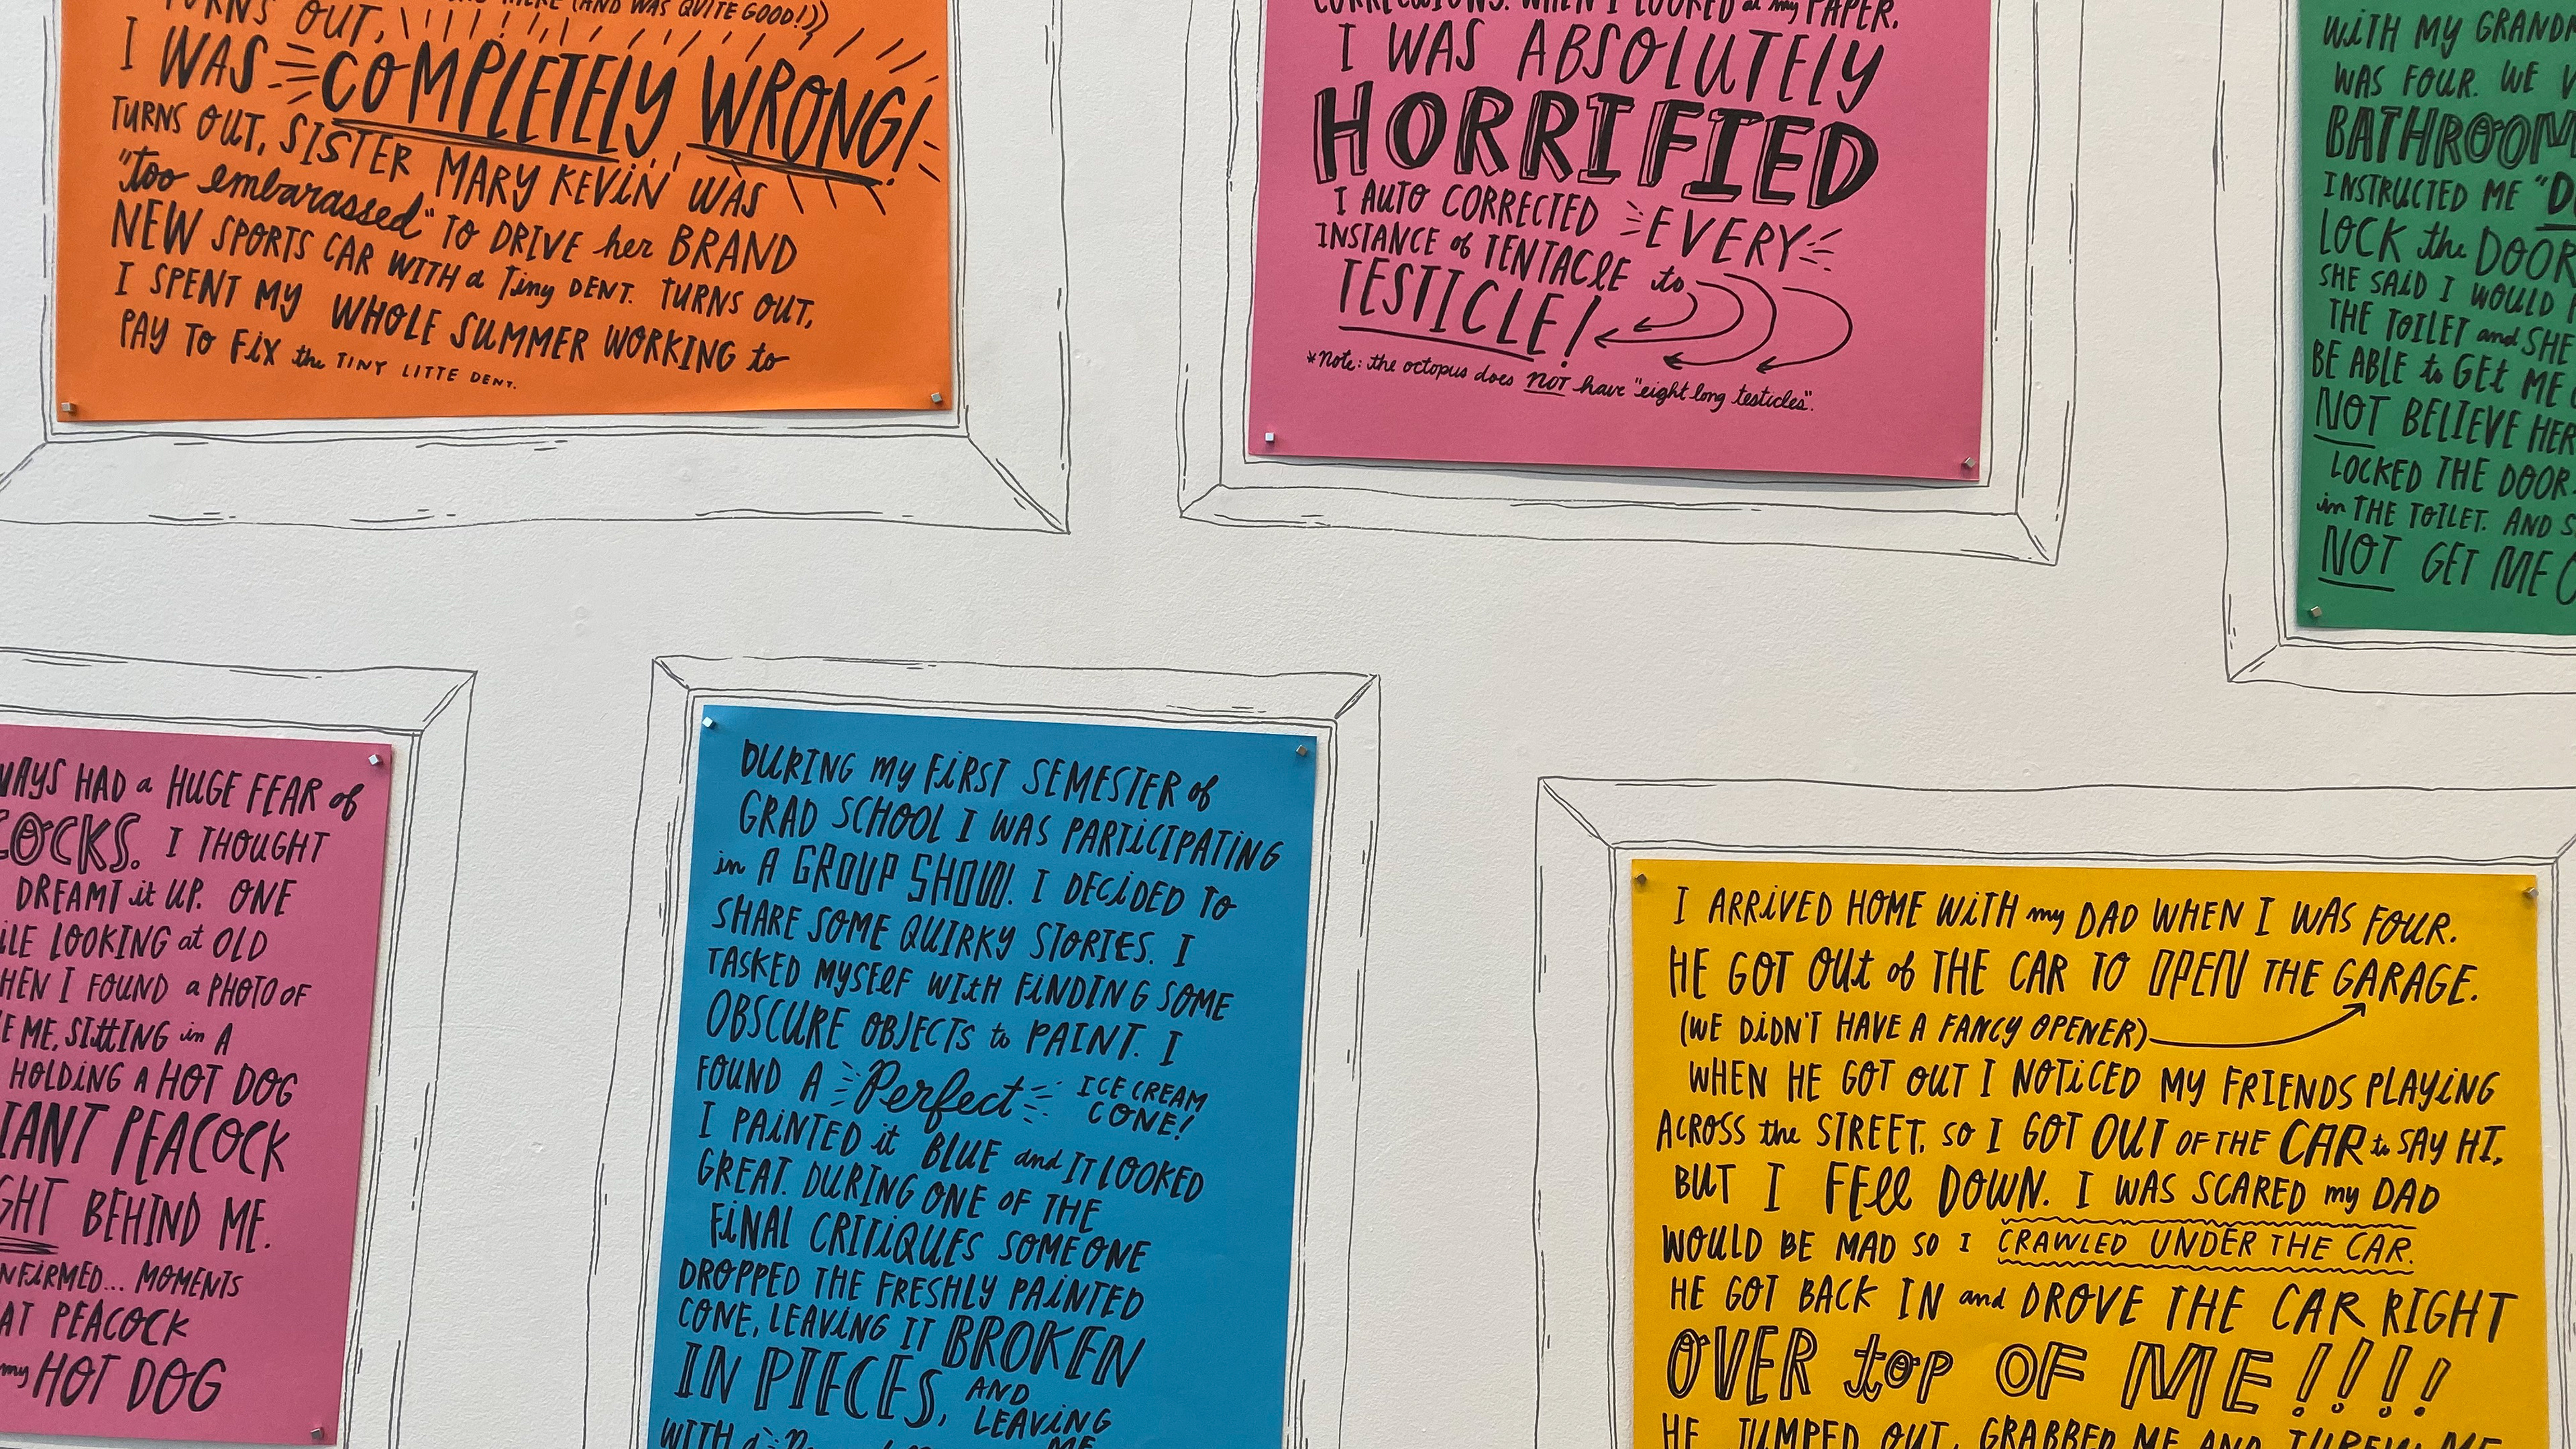 TURNS OUT,
(AND WAS QUITE GOOD!))
I WAS COMPLETELY WRONG!
TURNS OUT, SISTER MARY KEViN WAS
"too embarassed" TO DRIVE her BRAND
NEW SPORTS CAR WITH a Tiny DENT. TURNS OUT,
I SPENT MY WHOLE SUMMER WORKING to
PAY TO FiX the TINY LITTE DENT.
CORRECTIONS. WHEN I LOOKED at my PAPER.
I WAS ABSOLUTELY
HORRIFIED
I AUTO CORRECTED EVERY
INSTANCE of TENTACLE to
TESTICLE!
*Note: the octopus does NOT have "eight long testicles".
WITH MY GRAND
WAS FOUR. WE
BATHROOM
INSTRUCTED ME "D
LOCK the DOOR
SHE SAID I WOULD
THE TOILET and SHE
BE ABLE to GEt ME
NOT BELIEVE HER
LOCKED THE DOOR.
in THE TOILET. AND S
NOT GET ME O
WAYS HAD a HUGE FEAR of
COCKS. I THOUGHT
DREAMT it UP. ONE
ILE LOOKING at OLD
HEN I FOUND a PHOTO OF
E ME, SittING in A
HOLDING A HOT DOG
IANT PEACOCK
GHT BEHIND ME.
NFiRMED... MOMENTS
AT PEACOCK
my HOT DOG
DURING my FiRST SEMESTER of
GRAD SCHOOL I WAS PARTiCIPATING
in A GROUP SHOW. I DECiDED TO
SHARE SOME QUIRKY STORiES. I
TASKED MYSElF WitH FiNDING SOME
OBSCURE OBJECTS to PAiNT. I
FOUND A Perfect ICE CREAM
CONE!
I PAiNTED it BLUE and IT LOOKED
GREAT. DURING ONE OF THE
FiNAL CRITiQUES SOMEONE
DROPPED THE FRESHLY PAiNTED
CONE, LEAViNG IT BROKEN
IN PIECES, AND
LEAViNG
WITH a
ME
I ARRiVED HOME WiTH my DAD WHEN I WAS FOUR.
HE GOT OUt of THE CAR TO OPEN THE GARAGE.
(WE DiDN'T HAVE A FANCY OPENER)
WHEN HE GOT OUT I NOTiCED MY FRIENDS PLAYiNG
ACROSS the STREET, SO I GOT OUT OF THE CAR to SAY HI,
BUT I FEll DOWN. I WAS SCARED my DAD
WOULD BE MAD SO I CRAWLED UNDER THE CAR.
HE GOT BACK IN and DROVE THE CAR RIGHT
OVER top OF ME!!!!
HE JUMPED OUT, GRABBED ME AND THREW ME